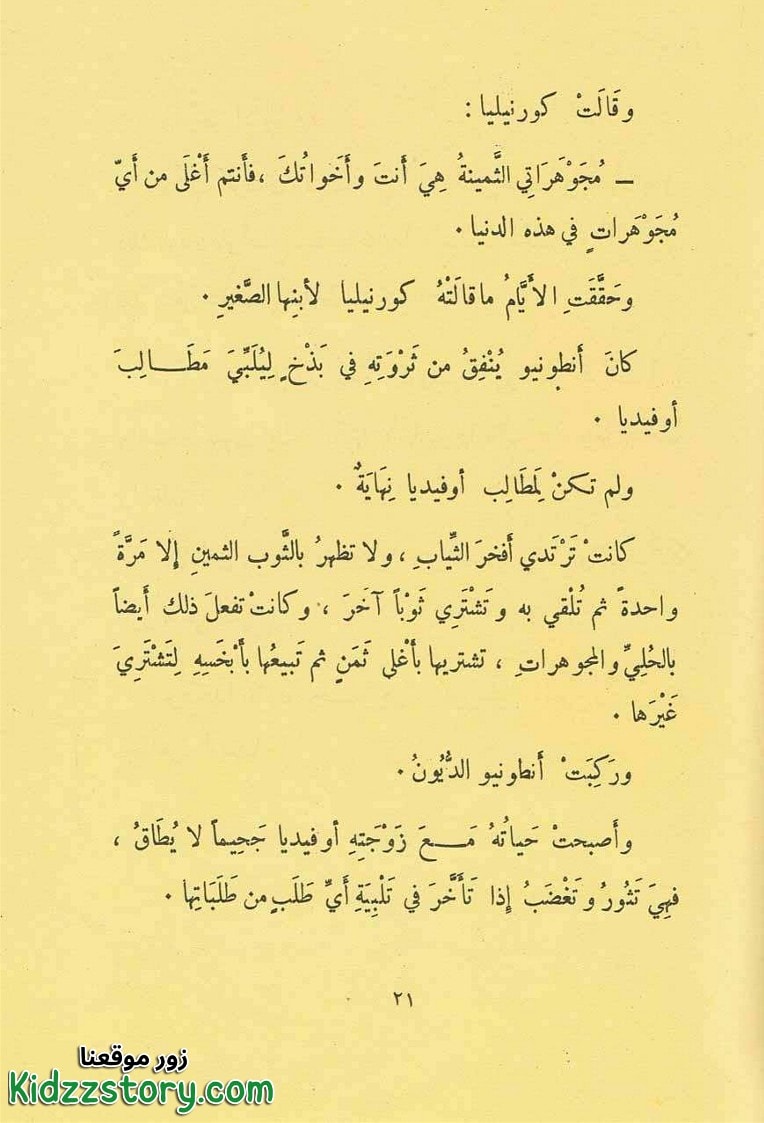 وقَالَتْ كورنيليا :
ــ مُجَوْهَرَاتي الثَّمينةُ هِيَ أَنتَ وأَخَواتُكَ ، فأَنتم أَغْلَى من أَيّ
مُجَوْهَراتٍ في هذه الدنيا .
وحَقَّقَتِ الأَيَّامُ ماقالَتْهُ كورنيليا لأبنِها الصَّغيرِ .
كانَ أَنطونيو يُنْفِقُ من ثَرْوَتِهِ في بَذْخٍ لِيُلَبِّيَ مَطَـــالِبَ
أوفيديا .
ولم تكنْ لِمَطَالِب أوفيديا نِهَايَةٌ .
كانتْ تَرْتَدي أَفخرَ الثِّيابِ ، ولا تظهرُ بالثَّوب الثمينِ إلا مَرَّةً
واحدةً ثم تُلْقي به وتَشْتَرِي ثَوْباً آخَرَ ، وكانتْ تفعلَ ذلك أَيضاً
بالحُلِيِّ والمجوهراتِ ، تشتريها بأَغلى ثَمَنٍ ثم تَبيعُها بأَبْخَسِهِ لِتَشْتَرِيَ
غَيْرَها .
ورَكِبَتْ أَنطونيو الدُّيُونُ .
وأَصبحتْ حَياتُهُ مَــعَ زَوْجَتِهِ أوفيديا جَحيماً لا يُطَاقُ ،
فهِيَ تَثُورُ وتَغْضَبُ إذا تَأَخَّرَ في تَلْبِيَةِ أَيِّ طَلَبٍ من طَلَبَاتِها .
٢١
زور موقعنا
Kidzzstory.com